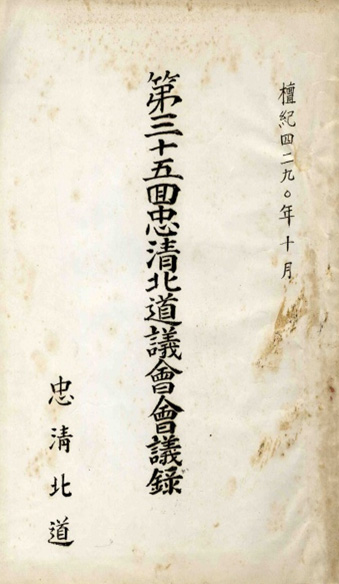 檀紀四二九〇年十月
第三十五回忠清北道議會會議錄
忠清北道